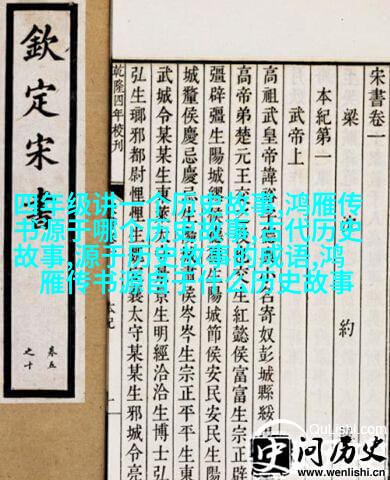 四年级讲一个历史故事,鸿雁传
书源于哪个历史故事,古代历史
故事,源于历史故事的成语,鸿
雁传书源自于什么历史故事
欽定宋書
卷五
之十
宋書卷一
梁 約
本紀第一
武帝上
高祖武皇帝諱 小名寄奴彭城縣綏
高帝弟楚元王交 生紅懿侯富富生宗正辟
彊辟彊生陽城繆 生陽城節侯安民安民生陽
城釐侯慶忌慶忌 肅侯岑岑生宗正平平生東
武城令某某生東 景生明經洽洽生博士弘
弘生瑯邪都尉悝悝生 襄太守某某生邪城令亮
乾隆四年校刊
本紀
一
QuLishi.com
问历史
www.wenlishi.cn